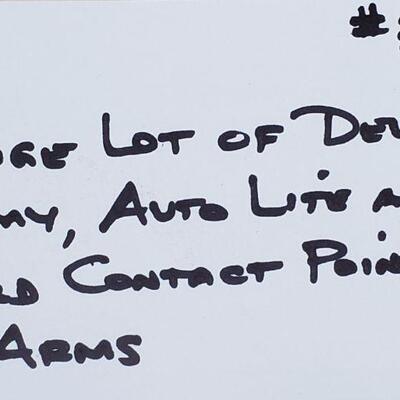 #
RGE LOT OF DEL
MY, AUTO LITE A
RD CONTACT POIN
ARMS